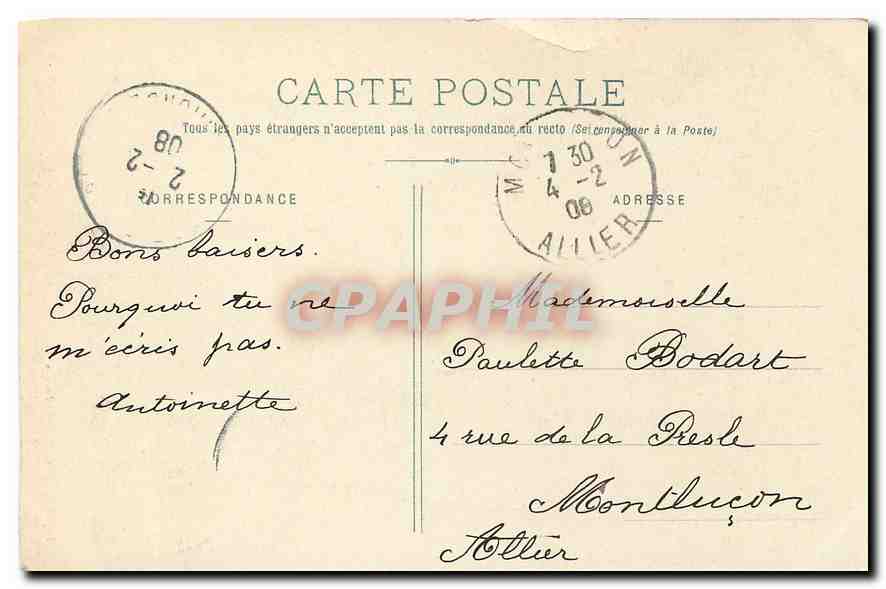 CARTE POSTALE
Tous les pays étrangers n'acceptent pas la correspondance au recto (Se renseigner à la Poste)
CORRESPONDANCE
ADRESSE
08
2-2
7 30
4-2
08
ALLIER
Bons baisers.
Pourquoi tu ne
m'écris pas.
Antoinette
Mademoiselle
Paulette Bodart
4 rue de la Presle
Montluçon
Allier
CPAPHIL